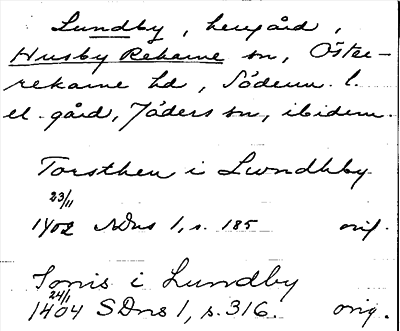 Lundby, herrgård,
Husby Rekarne sn, Öster-
rekarne hd, Söderm. l.
el. gård, Jäders sn, ibidem.
Torsthen i Lwndhby
23/11
1402 SDns 1, s. 185 orig.
Jonis i Lundby
24/1
1404 SDns 1, s. 316. orig.